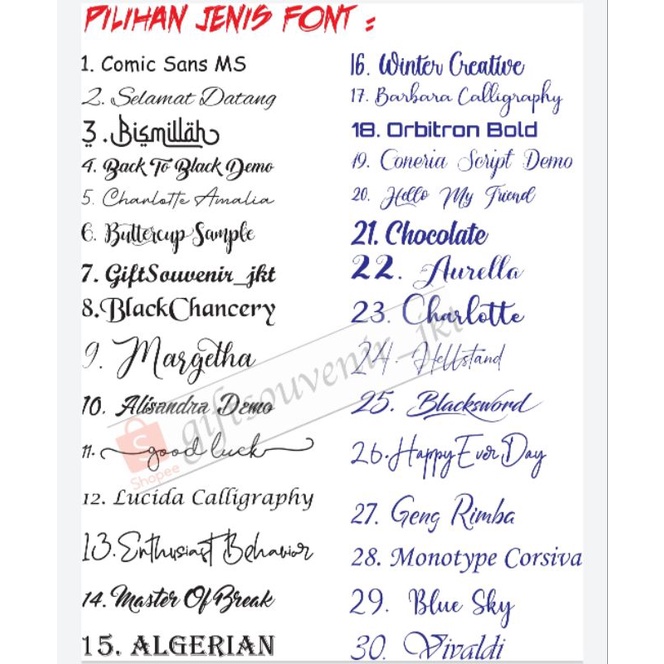 PILIHAN JENIS FONT :
1. Comic Sans MS
2. Selamat Datang
3. Bismillah
4. Back To Black Demo
5. Charlotte Amalia
6. Buttercup Sample
7. GiftSouvenir_jkt
8. BlackChancery
9. Margetha
10. Alisandra Demo
11. good luck
12. Lucida Calligraphy
13. Enthusiast Behavior
14. Master Of Break
15. ALGERIAN
16. Winter Creative
17. Barbara Calligraphy
18. Orbitron Bold
19. Coneria Script Demo
20. Hello My Friend
21. Chocolate
22. Aurella
23. Charlotte
24. Hellstand
25. Blacksword
26. Happy Ever Day
27. Geng Rimba
28. Monotype Corsiva
29. Blue Sky
30. Vivaldi
giftsouvenir_jkt
Shopee